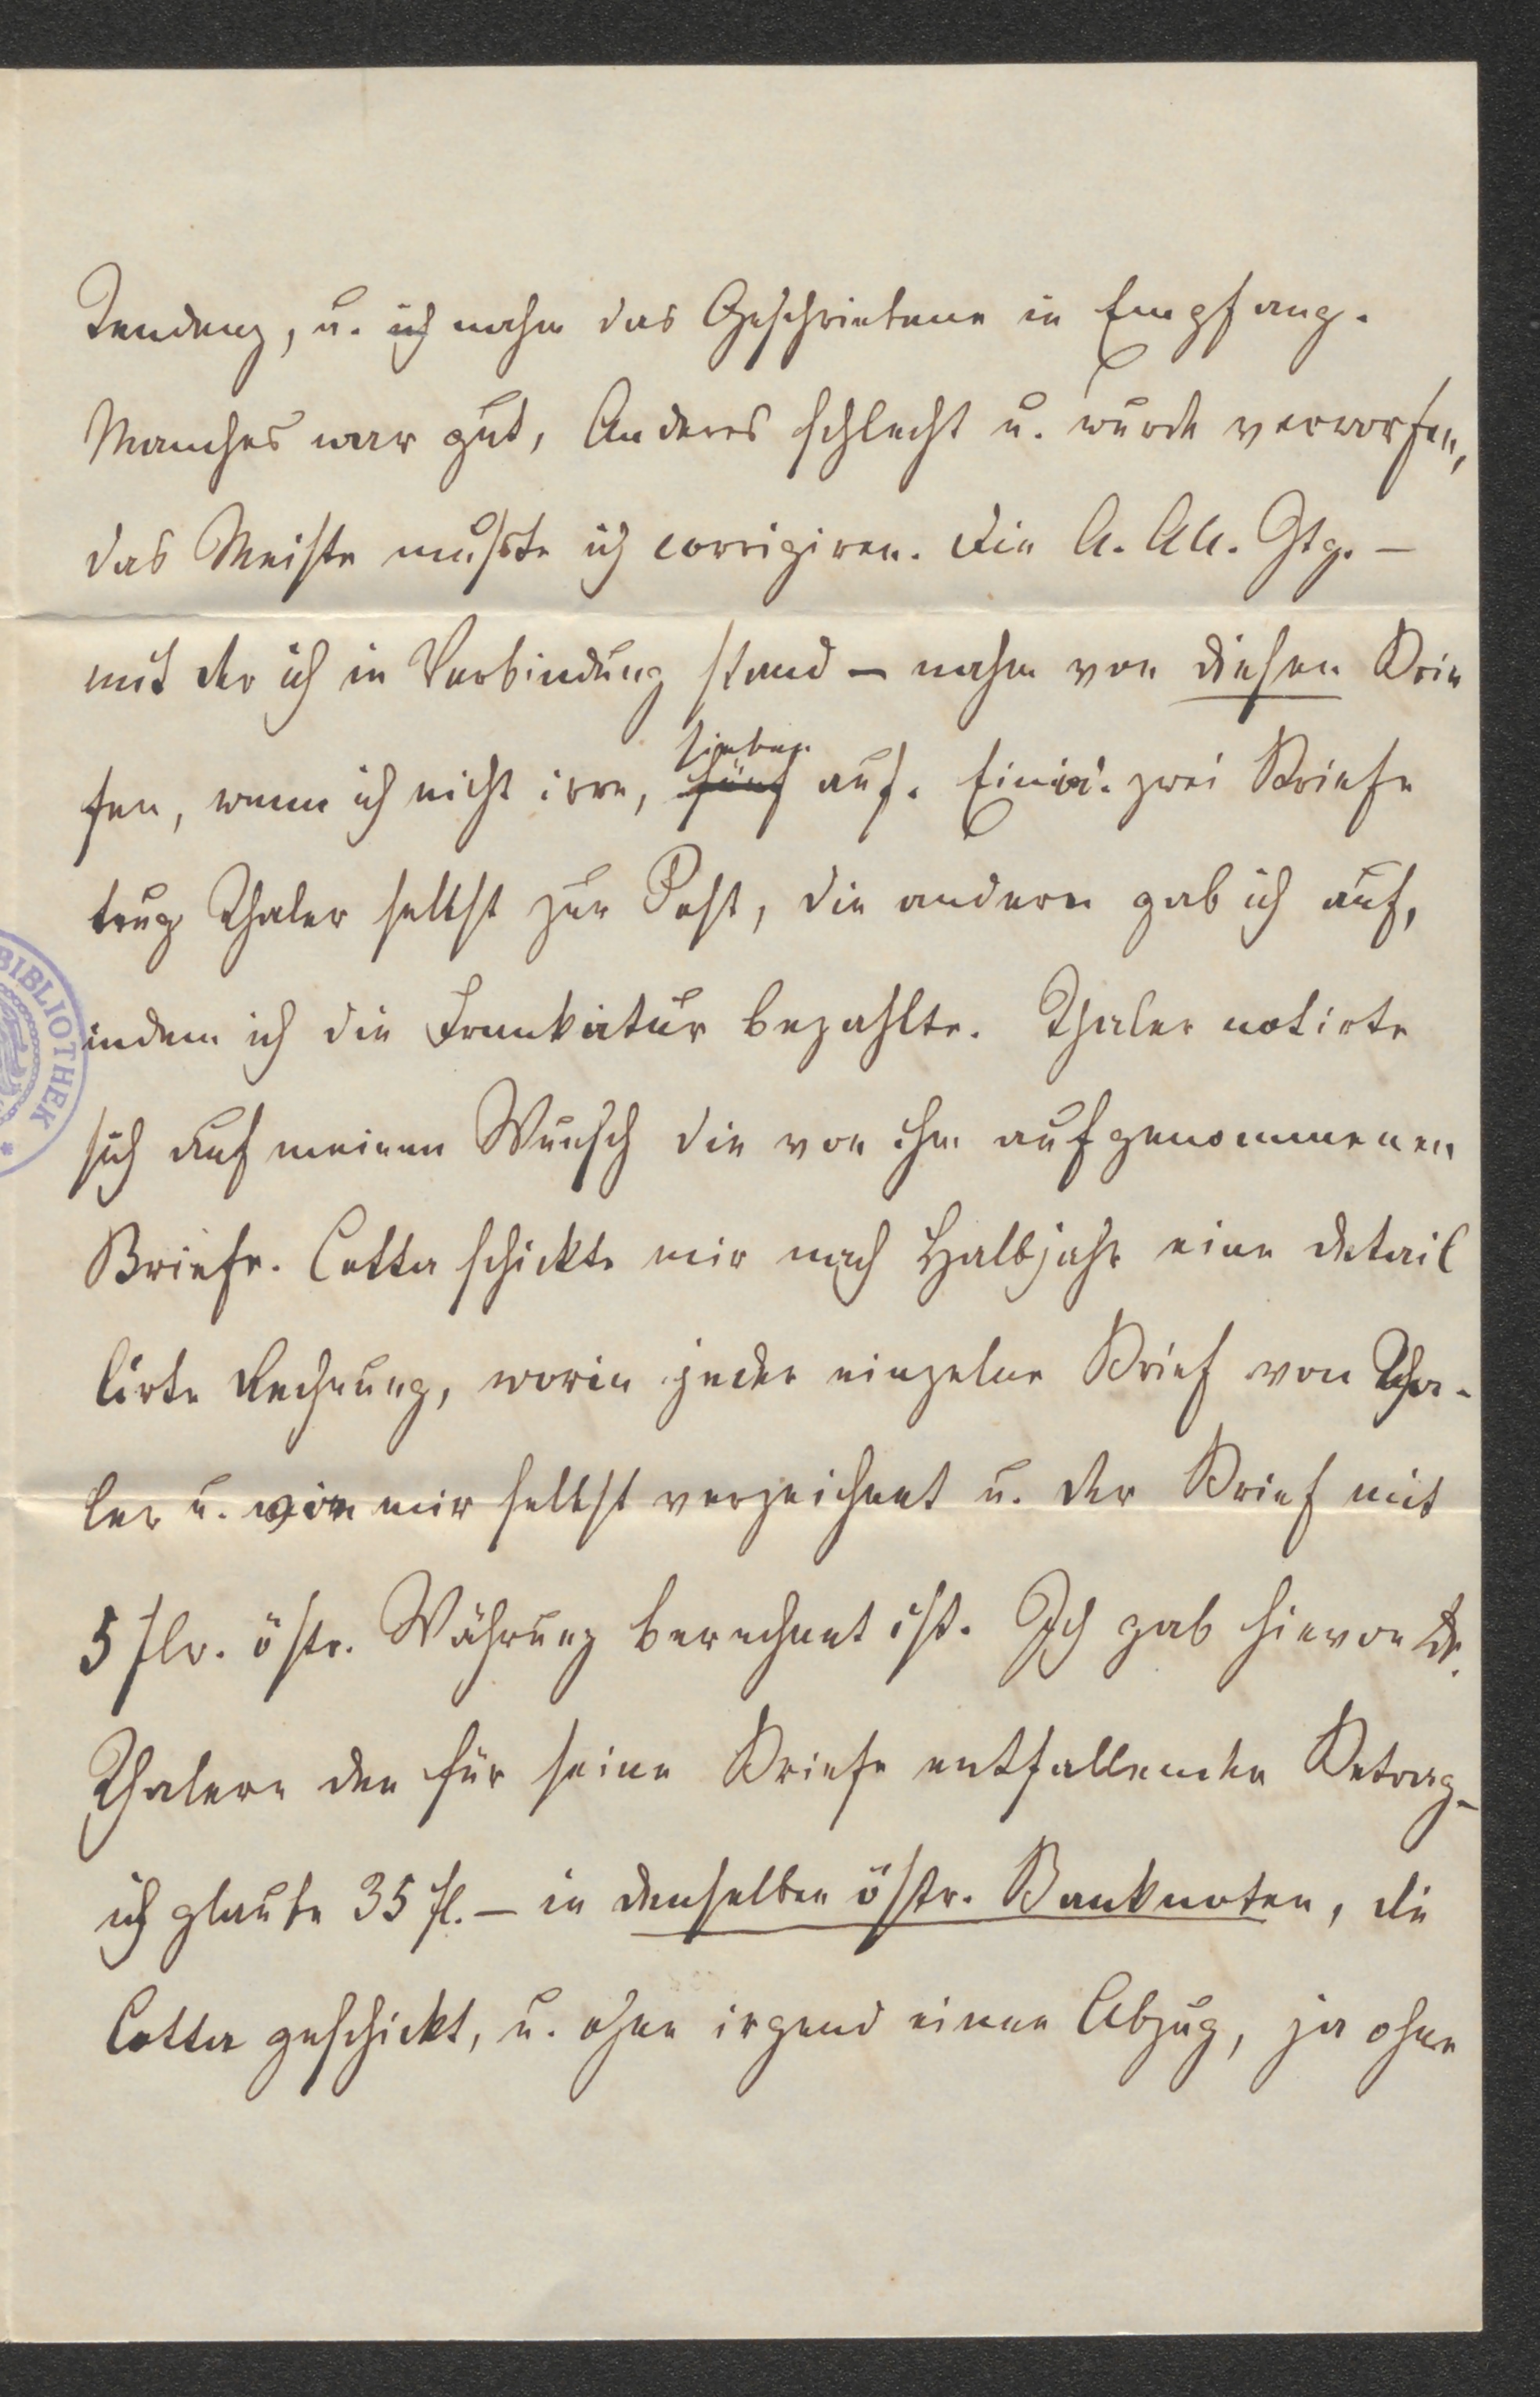 Tendenz, u. ich nahm das Geschriebene in Empfang.
Manches war gut, Anderes schlecht u. wurde verworfen,
das Meiste mußte ich corrigiren. Die A. Allg. Ztg. –
mit der ich in Verbindung stand – nahm von diesen Brie
fen, wenn ich nicht irre, fünf sieben auf. Ein od. zwei Briefe
trug Thaler selbst zur Post, die andern gab ich auf,
indem ich die Frankatur bezahlte. Thaler notirte
sich auf meinen Wunsch die von ihm aufgenommenen
Briefe. Cotta schickte mir nach Halbjahr eine detail
lirte Rechnung, worin jeder einzelne Brief von Tha-
ler u. von mir selbst verzeichnet u. der Brief mit
5 flr. östr. Währung berechnet ist. Ich gab hievon Dr.
Thalern den für seine Briefe entfallenden Betrag –
ich glaube 35 fl. – in denselben östr. Banknoten, die
Cotta geschickt, u. ohne irgend einen Abzug, ja ohne
BIBLIOTHEK